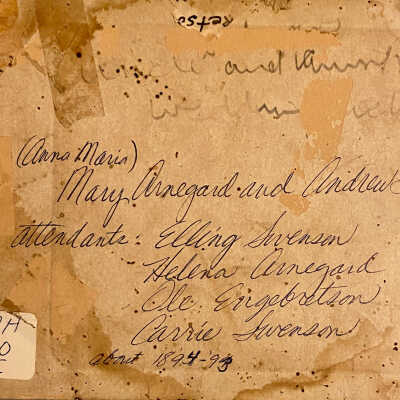 and
(Anna Maria)
Mary Arnegard and Andrew
attendants: Elling Swenson
Helena Arnegard
Ole Engebretson
Carrie Swenson
about 1894-93